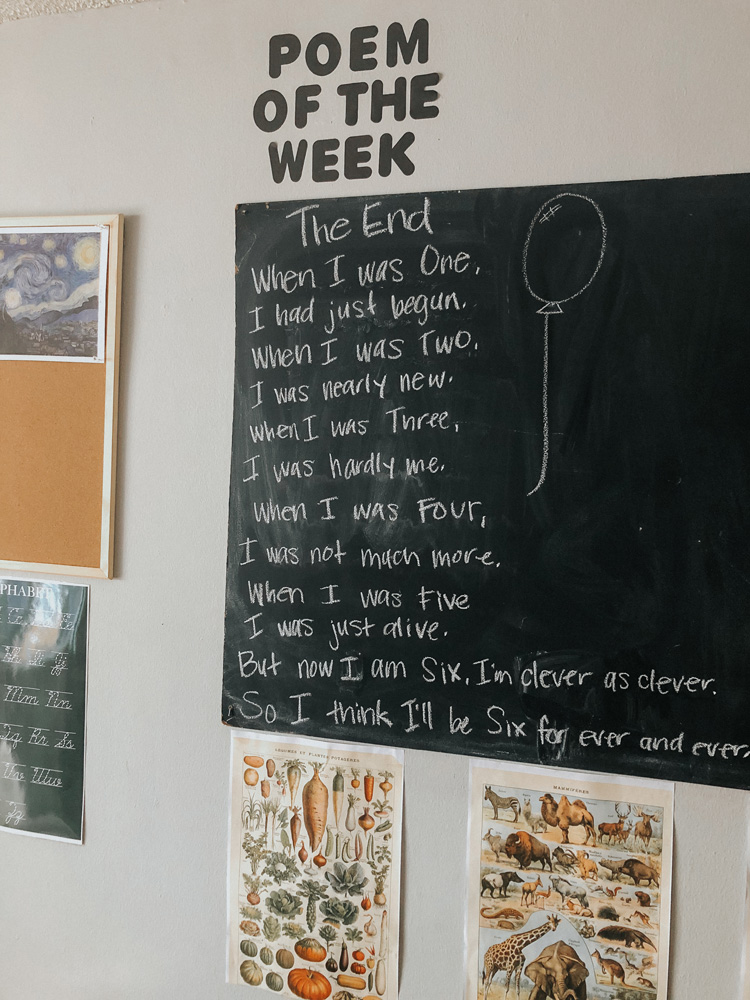 POEM
OF THE
WEEK
The End
When I was One,
I had just begun.
When I was Two,
I was nearly new.
When I was Three,
I was hardly me.
When I was Four,
I was not much more.
When I was Five
I was just alive.
But now I am Six, I'm clever as clever.
So I think I'll be Six for ever and ever.
PHABET
Cc
Hh Ii Jj
Mm Nn
Qq Rr Ss
Vv Ww
Zz
LEGUMES ET PLANTES POTAGERES
MAMMIFERES